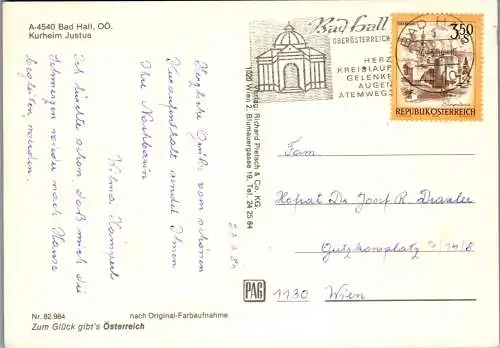 A-4540 Bad Hall, OÖ.
Kurheim Justus
Herzliche Grüße vom schönen
Kuraufenthalt sendet Ihnen
Ihre Nachbarin
Wilma
Ich fürchte schon, daß mich die
Schmerzen wieder nach Hause
begleiten werden.
Nr. 82.984
nach Original-Farbaufnahme
Zum Glück gibt's Österreich
Verlag: Richard Pietsch & Co. KG.
1020 Wien 2, Blumauergasse 19, Tel. 24 25 84
PAG
Bad Hall
OBERÖSTERREICH
HERZ
KREISLAUF
GELENKE
AUGEN
ATEMWEGE
BAD HALL
3.50
REPUBLIK ÖSTERREICH
Fam.
Hofrat Dr. Josef R. Draxler
Gutzkowplatz 3/14/8
1130 Wien